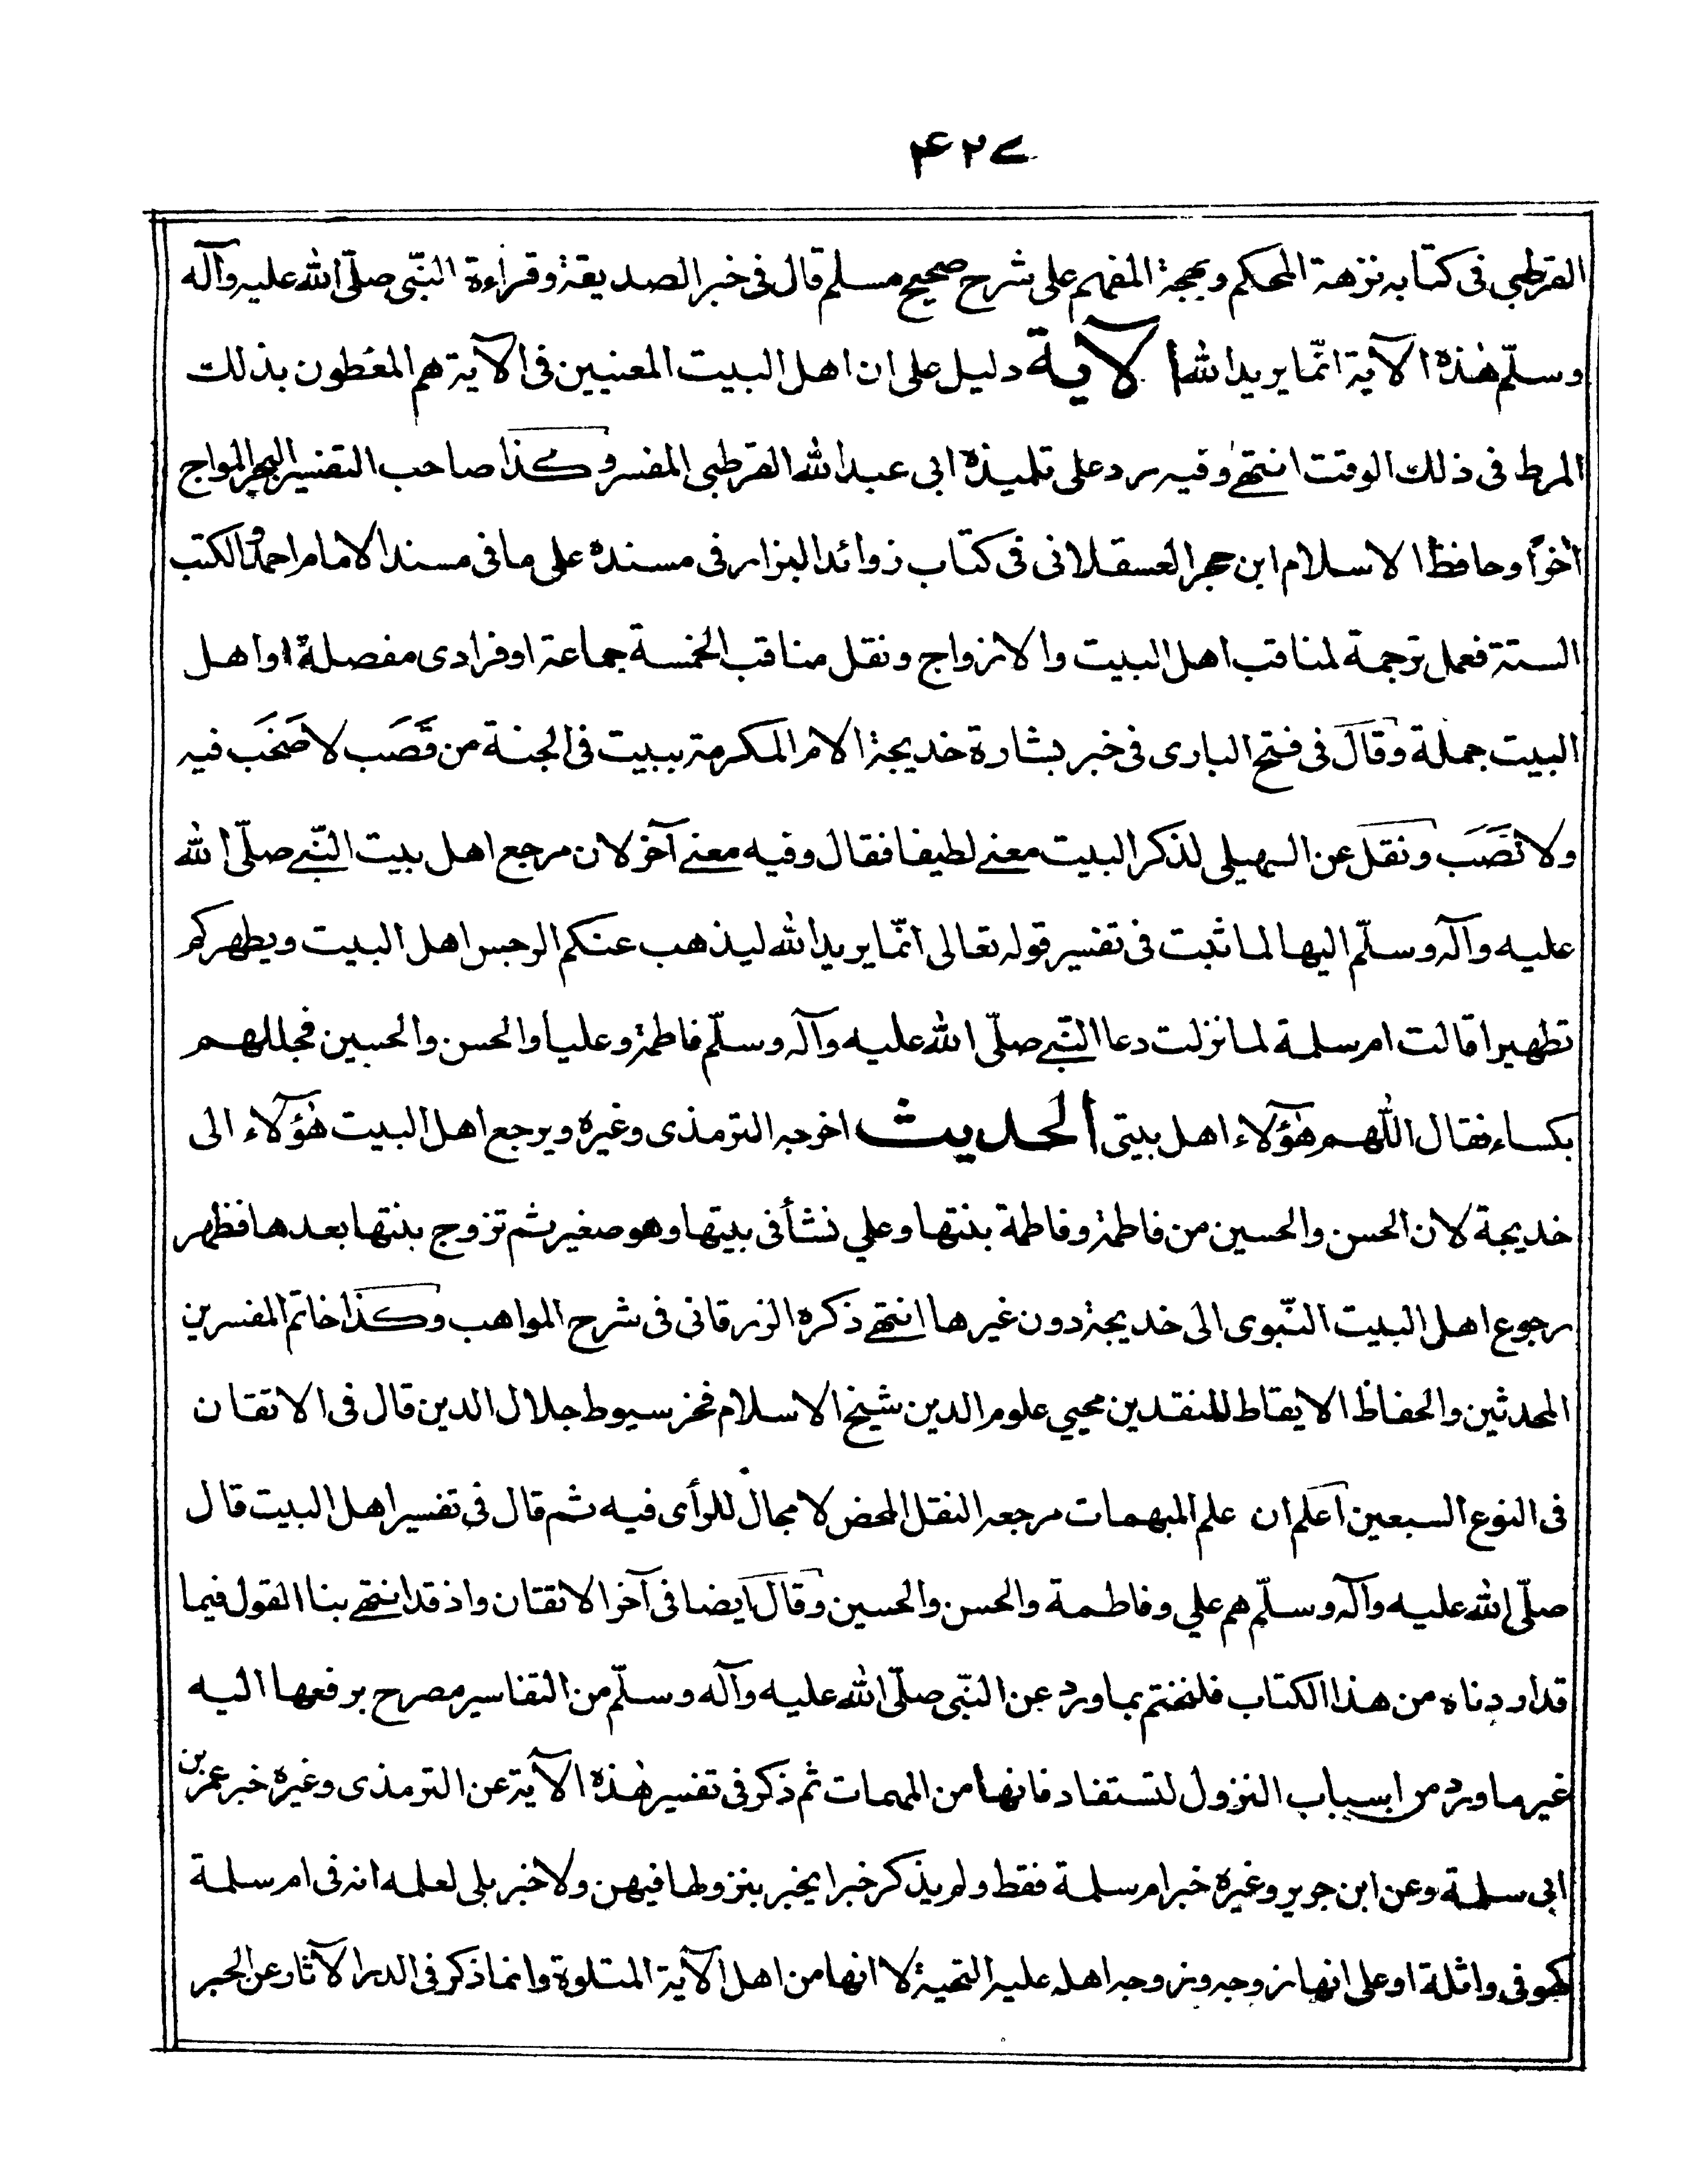 ۴۲۷
القرطبي فى كتابه نزهة المحكم وبهجة المفهم على شرح صحيح مسلم قال فى خبر الصديقة وقراءة النبّى صلّى الله عليه وآله
وسلّم هٰذه الآية انّما يريد الله الآية دليل على ان اهل البيت المعنيين فى الآية هم المغطون بذلك
المرط فى ذلك الوقت انتهےٰ وفيه رد على تلميذه ابى عبد الله القرطبى المفسر وكذا صاحب التفسير البحر المواج
آخرًا وحافظ الاسلام ابن حجر العسقلانى فى كتاب زوائد البزار فى مسنده على ما فى مسند الامام احمد والكتب
الستة فعمل ترجمة لمناقب اهل البيت والازواج ونقل مناقب الخمسة جماعة او فرادى مفصلة او اهل
البيت جملة وقال فى فتح البارى فى خبر بشارة خديجة الام المكرمة ببيت فى الجنة من قَصَب لا صَخَب فيه
ولا نَصَب ونقل عن السهيلى لذكر البيت معنے لطيفا فقال وفيه معنے آخر لان مرجع اهل بيت النّبے صلّى الله
عليه وآله وسلّم اليها لما ثبت فى تفسير قوله تعالى انّما يريد الله ليذهب عنكم الرجس اهل البيت ويطهركم
تطهيرا قالت ام سلمة لما نزلت دعا النّبے صلّى الله عليه وآله وسلّم فاطمة وعليا والحسن والحسين فجللهم
بكساء فقال اللّٰهم هٰؤلاء اهل بيتى الحديث اخرجه الترمذى وغيره ويرجع اهل البيت هٰؤلاء الى
خديجة لان الحسن والحسين من فاطمة وفاطمة بنتها وعلي نشأ فى بيتها وهو صغير ثم تزوج بنتها بعدها فظهر
رجوع اهل البيت النّبوى الى خديجة دون غيرها انتهے ذكره الزرقانى فى شرح المواهب وكذا خاتم المفسرين
المحدثين والحفاظ الايقاظ للنقدين محيي علوم الدين شيخ الاسلام فخر سيوط جلال الدين قال فى الاتقان
فى النوع السبعين اعلم ان علم المبهمات مرجعه النقل المحض لا مجال للرأى فيه ثم قال فى تفسير اهل البيت قال
صلّى الله عليه وآله وسلّم هم علي وفاطمة والحسن والحسين وقال ايضا فى آخر الاتقان واذ قد انتهے بنا القول فيما
قد اردناه من هذا الكتاب فلنختم بما ورد عن النبّى صلّى الله عليه وآله وسلّم من التفاسير مصرح برفعها اليه
غير ما ورد من اسباب النزول لتستفاد فانها من المهمات ثم ذكر فى تفسير هٰذه الآية عن الترمذى وغيره خبر عمر بن
ابى سلمة وعن ابن جرير وغيره خبر ام سلمة فقط ولم يذكر خبرا يخبر بنزولها فيهن ولا خبر بلى لعلمه انه فى ام سلمة
كهو فى واثلة او على انها زوجه وزوجه اهله عليه التحية لا انها من اهل الآية المتلوة وانما ذكر فى الدر الآثار عن الحبر